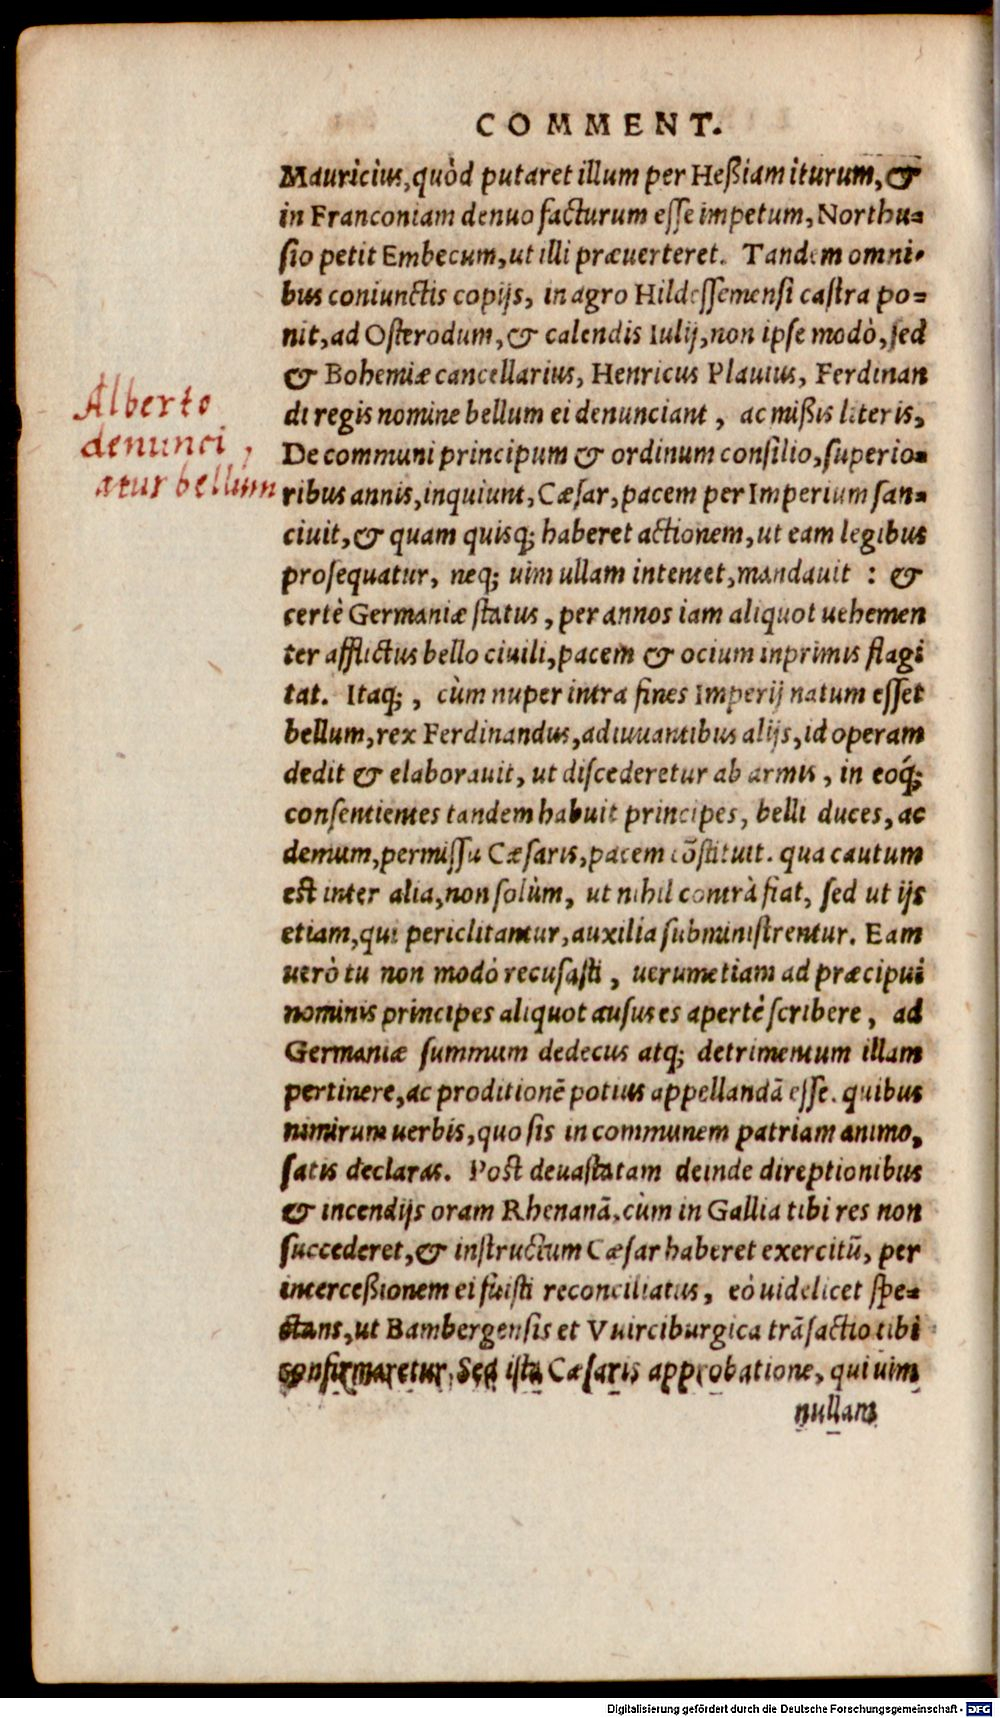 COMMENT.
Mauricius, quòd putaret illum per Heßiam iturum, &
in Franconiam denuo facturum esse impetum, Northu=
sio petit Embecum, ut illi præuerteret. Tandem omni-
bus coniunctis copijs, in agro Hildessemensi castra po=
nit, ad Osterodum, & calendis Iulij, non ipse modò, sed
& Bohemiæ cancellarius, Henricus Plauius, Ferdinan
di regis nomine bellum ei denunciant, ac mißis literis,
Alberto
denunci,
atur bellum
De communi principum & ordinum consilio, superio=
ribus annis, inquiunt, Cæsar, pacem per Imperium san=
ciuit, & quam quisq; haberet actionem, ut eam legibus
prosequatur, neq; uim ullam intentet, mandauit : &
certè Germaniæ status, per annos iam aliquot uehemen
ter afflictus bello ciuili, pacem & ocium inprimis flagi
tat. Itaq;, cùm nuper intra fines Imperij natum esset
bellum, rex Ferdinandus, adiuuantibus alijs, id operam
dedit & elaborauit, ut discederetur ab armis, in eoq́;
consentientes tandem habuit principes, belli duces, ac
demum, permissu Cæsaris, pacem cōstituit. qua cautum
est inter alia, non solùm, ut nihil contrà fiat, sed ut ijs
etiam, qui periclitantur, auxilia subministrentur. Eam
uerò tu non modò recusasti, uerumetiam ad præcipui
nominis principes aliquot ausus es apertè scribere, ad
Germaniæ summum dedecus atq; detrimentum illam
pertinere, ac proditionē potius appellandā esse. quibus
nimirum uerbis, quo sis in communem patriam animo,
satis declaras. Post deuastatam deinde direptionibus
& incendijs oram Rhenanā, cùm in Gallia tibi res non
succederet, & instructum Cæsar haberet exercitū, per
interceßionem ei fuisti reconciliatus, eò uidelicet spe=
ctans, ut Bambergensis et Vuirciburgica trāsactio tibi
confirmaretur. Sed ista Cæsaris approbatione, qui uim
nullam
Digitalisierung gefördert durch die Deutsche Forschungsgemeinschaft - DFG